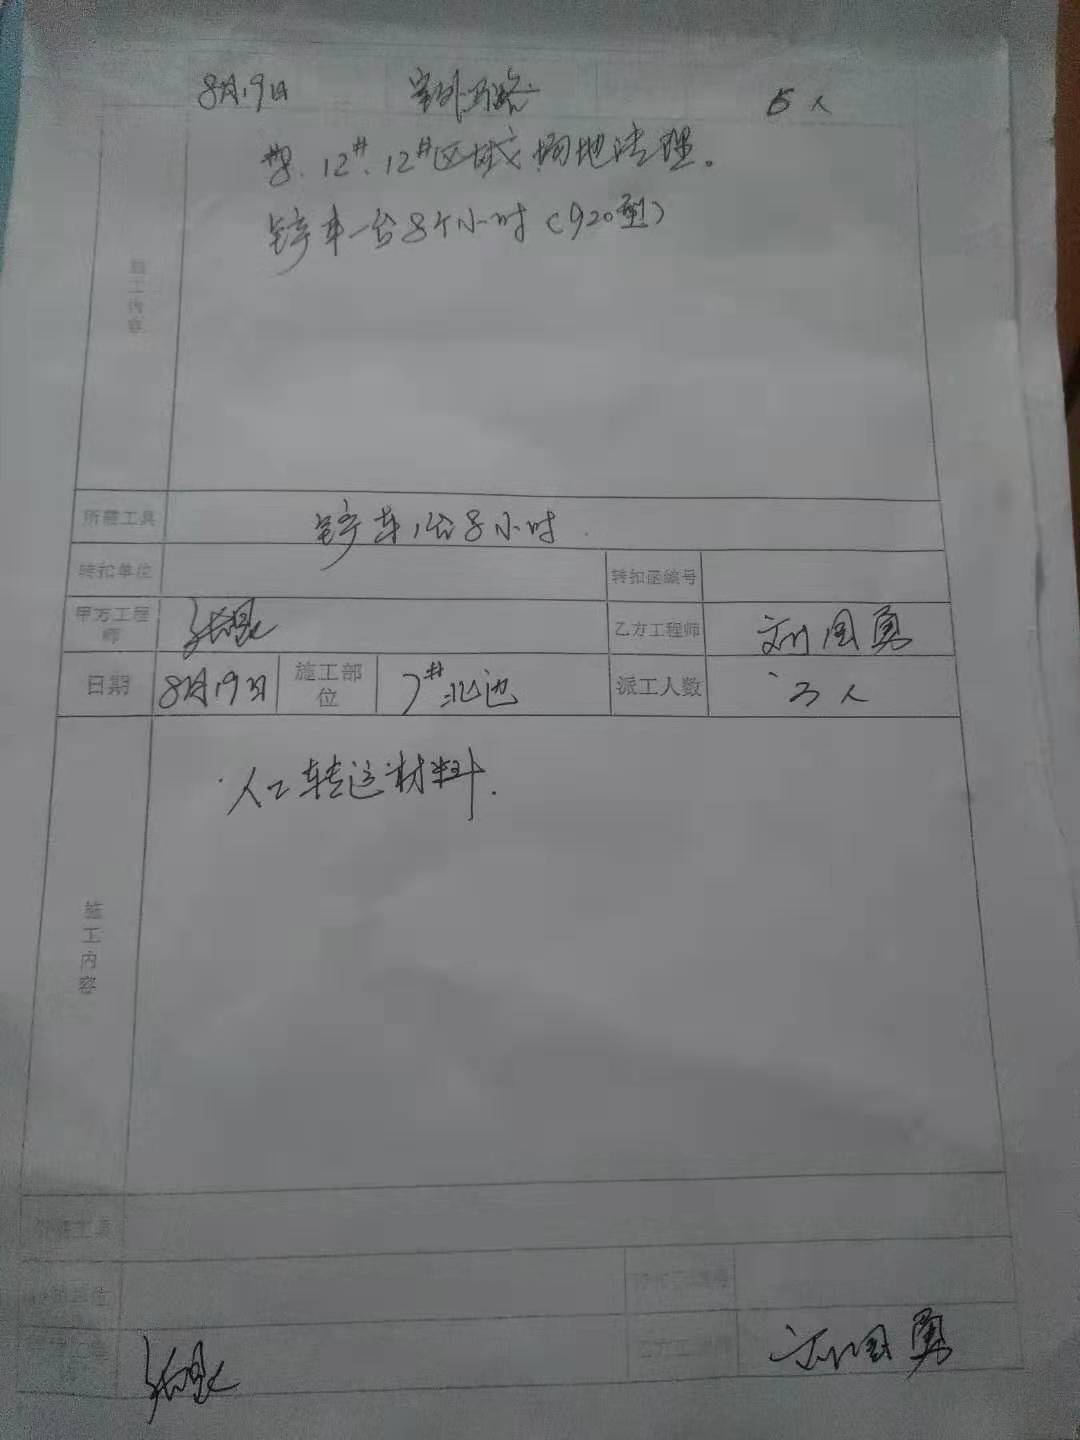 8月19日 室外道路 5人
12#、12#区域场地清理。
铲车一台8个小时(920型)
施工内容
所需工具 铲车1台8小时
转扣单位 转扣函编号
甲方工程师 乙方工程师 刘国勇
日期 8月19日 施工部位 7#北边 派工人数 3人
人工转运材料.
施工内容
所需工具
转扣单位 转扣函编号
乙方工程师 刘国勇